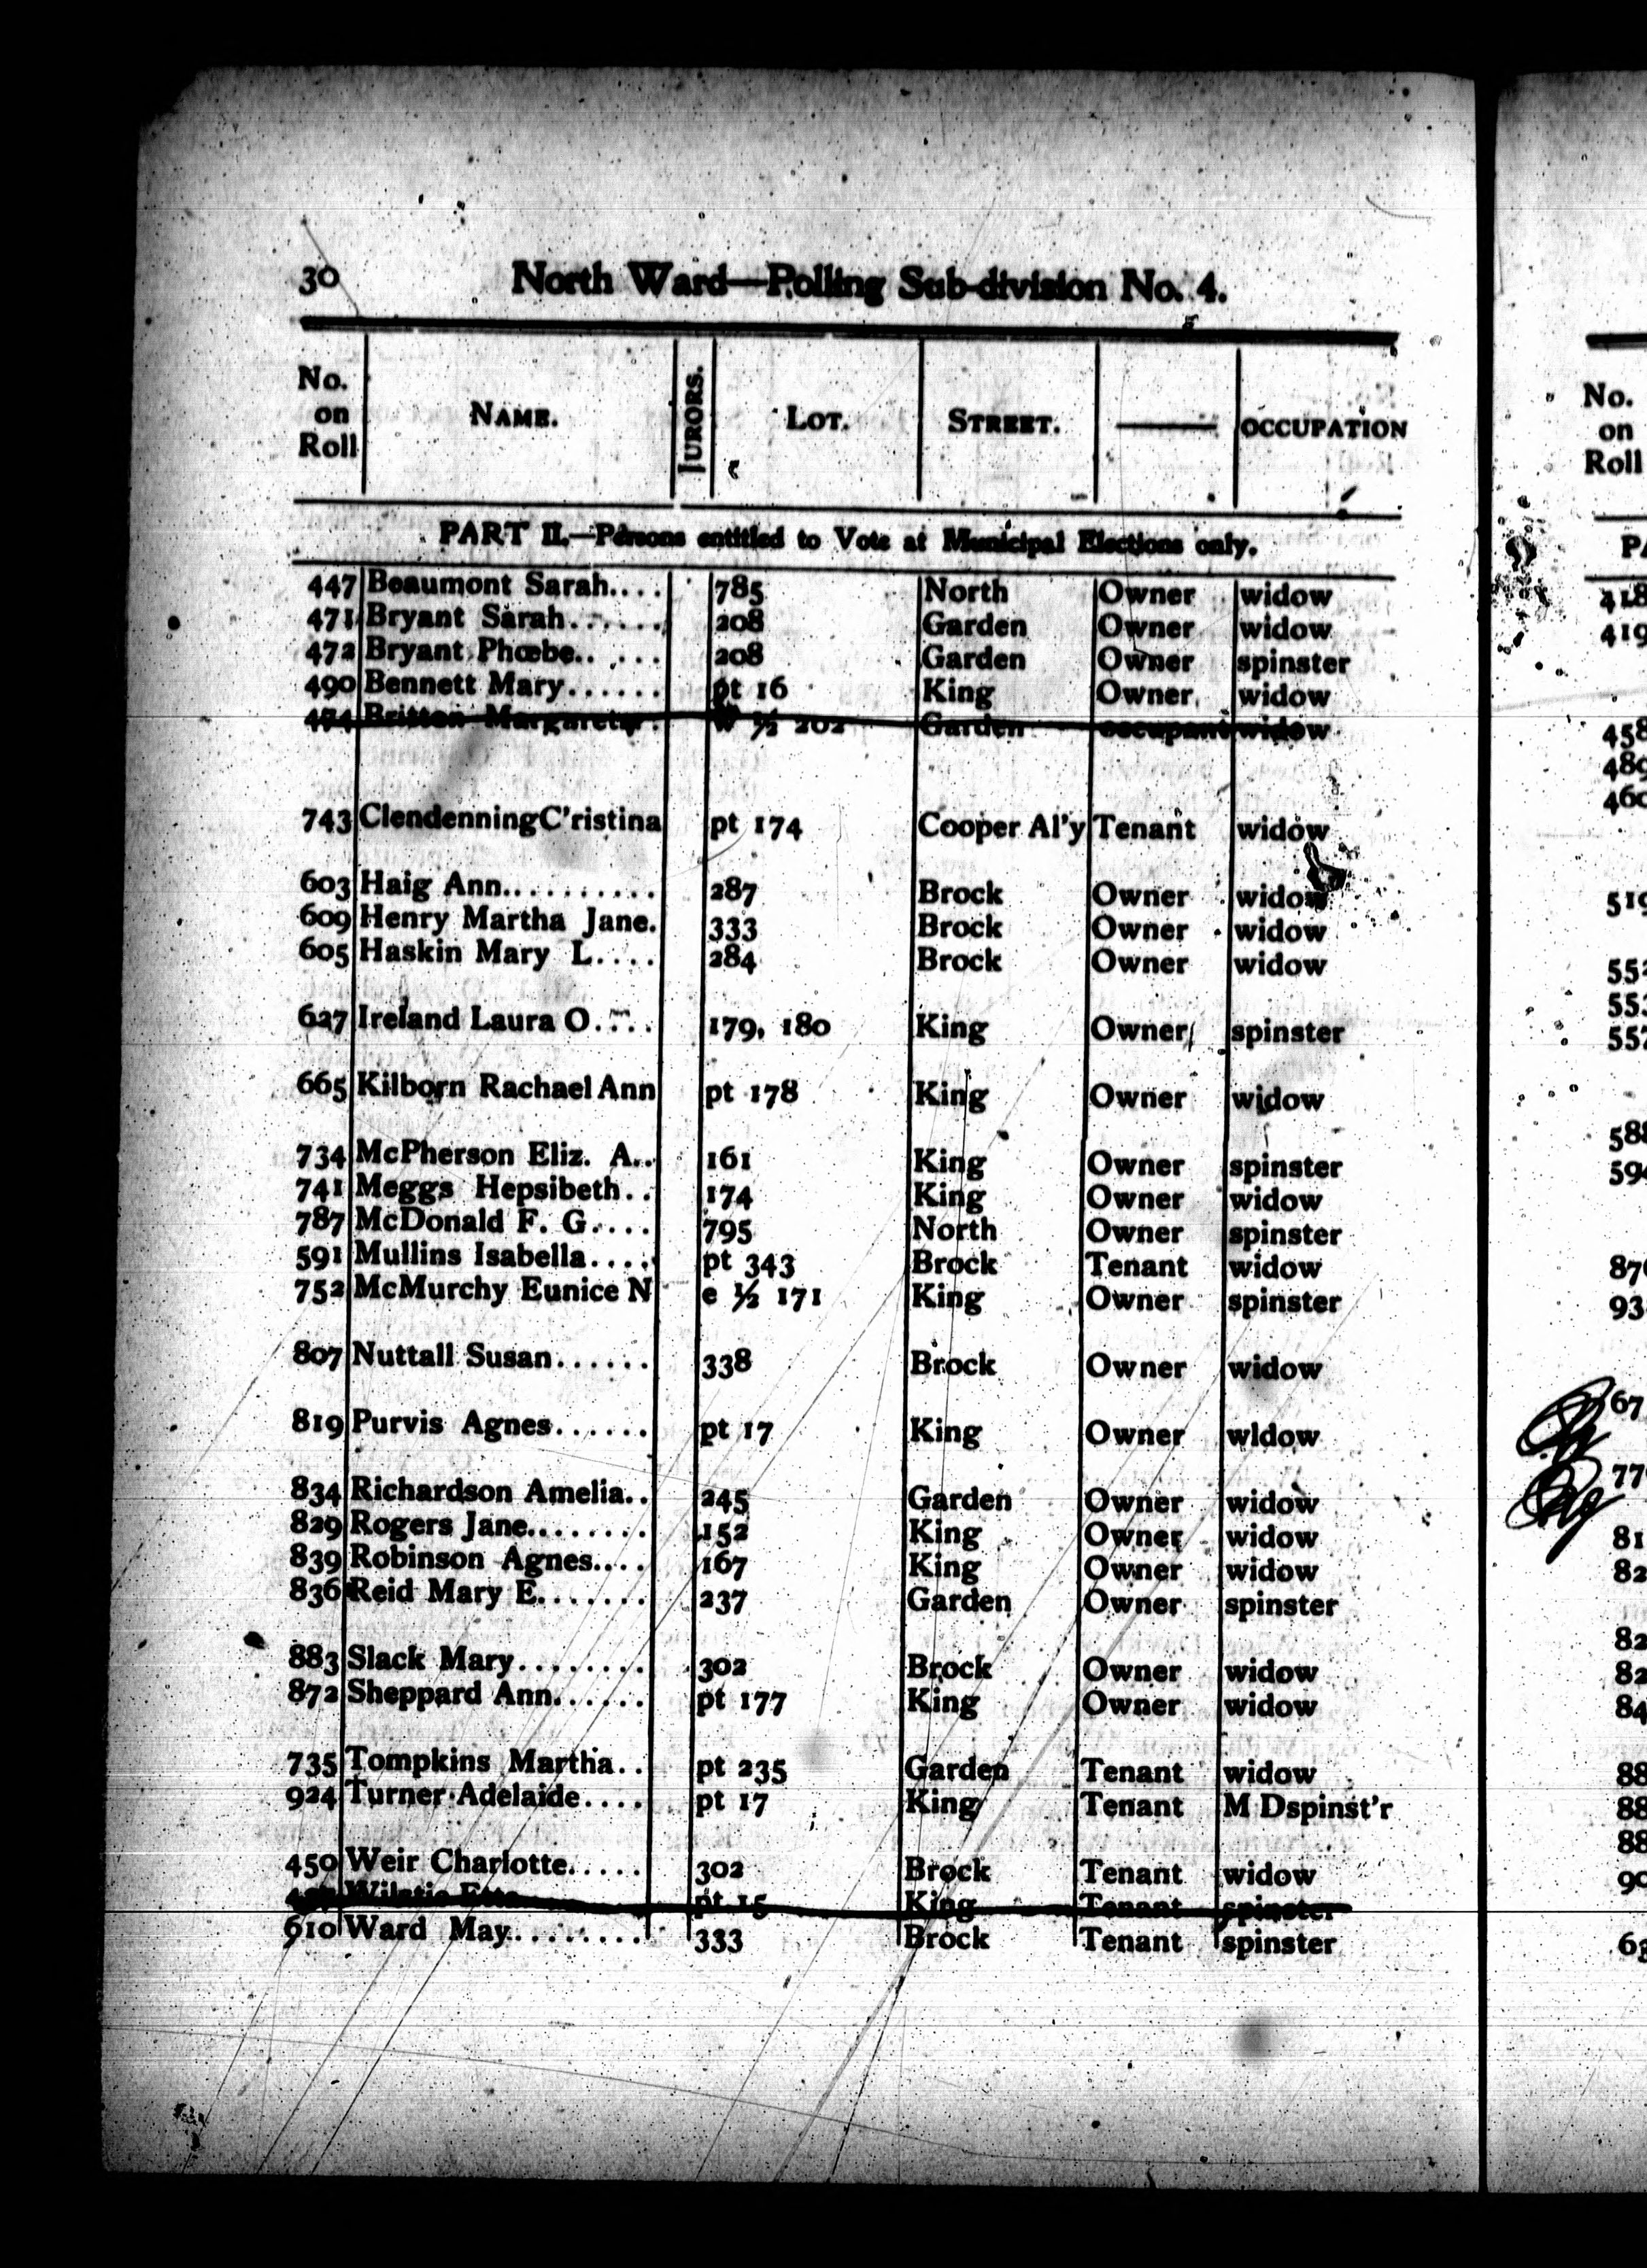 30 North Ward—Polling Sub-division No. 4.
No. on Roll NAME. JURORS. LOT. STREET. —— OCCUPATION
PART II.—Persons entitled to Vote at Municipal Elections only.
447 Beaumont Sarah.... 785 North Owner widow
471 Bryant Sarah...... 208 Garden Owner widow
472 Bryant Phœbe.. ... 208 Garden Owner spinster
490 Bennett Mary...... pt 16 King Owner widow
474 Britton Margaret w ½ 202 Garden occupant widow
743 Clendenning C'ristina pt 174 Cooper Al'y Tenant widow
603 Haig Ann.......... 287 Brock Owner widow
609 Henry Martha Jane. 333 Brock Owner widow
605 Haskin Mary L.... 284 Brock Owner widow
627 Ireland Laura O.... 179, 180 King Owner spinster
665 Kilborn Rachael Ann pt 178 King Owner widow
734 McPherson Eliz. A.. 161 King Owner spinster
741 Meggs Hepsibeth.. 174 King Owner widow
787 McDonald F. G.... 795 North Owner spinster
591 Mullins Isabella.... pt 343 Brock Tenant widow
752 McMurchy Eunice N e ½ 171 King Owner spinster
807 Nuttall Susan...... 338 Brock Owner widow
819 Purvis Agnes...... pt 17 King Owner wldow
834 Richardson Amelia.. 245 Garden Owner widow
829 Rogers Jane........ 152 King Owner widow
839 Robinson Agnes.... 167 King Owner widow
836 Reid Mary E....... 237 Garden Owner spinster
883 Slack Mary........ 302 Brock Owner widow
872 Sheppard Ann...... pt 177 King Owner widow
735 Tompkins Martha.. pt 235 Garden Tenant widow
924 Turner Adelaide.... pt 17 King Tenant M D spinst'r
450 Weir Charlotte..... 302 Brock Tenant widow
pt 15 King Tenant spinster
610 Ward May........ 333 Brock Tenant spinster
No.
on
Roll
418
419